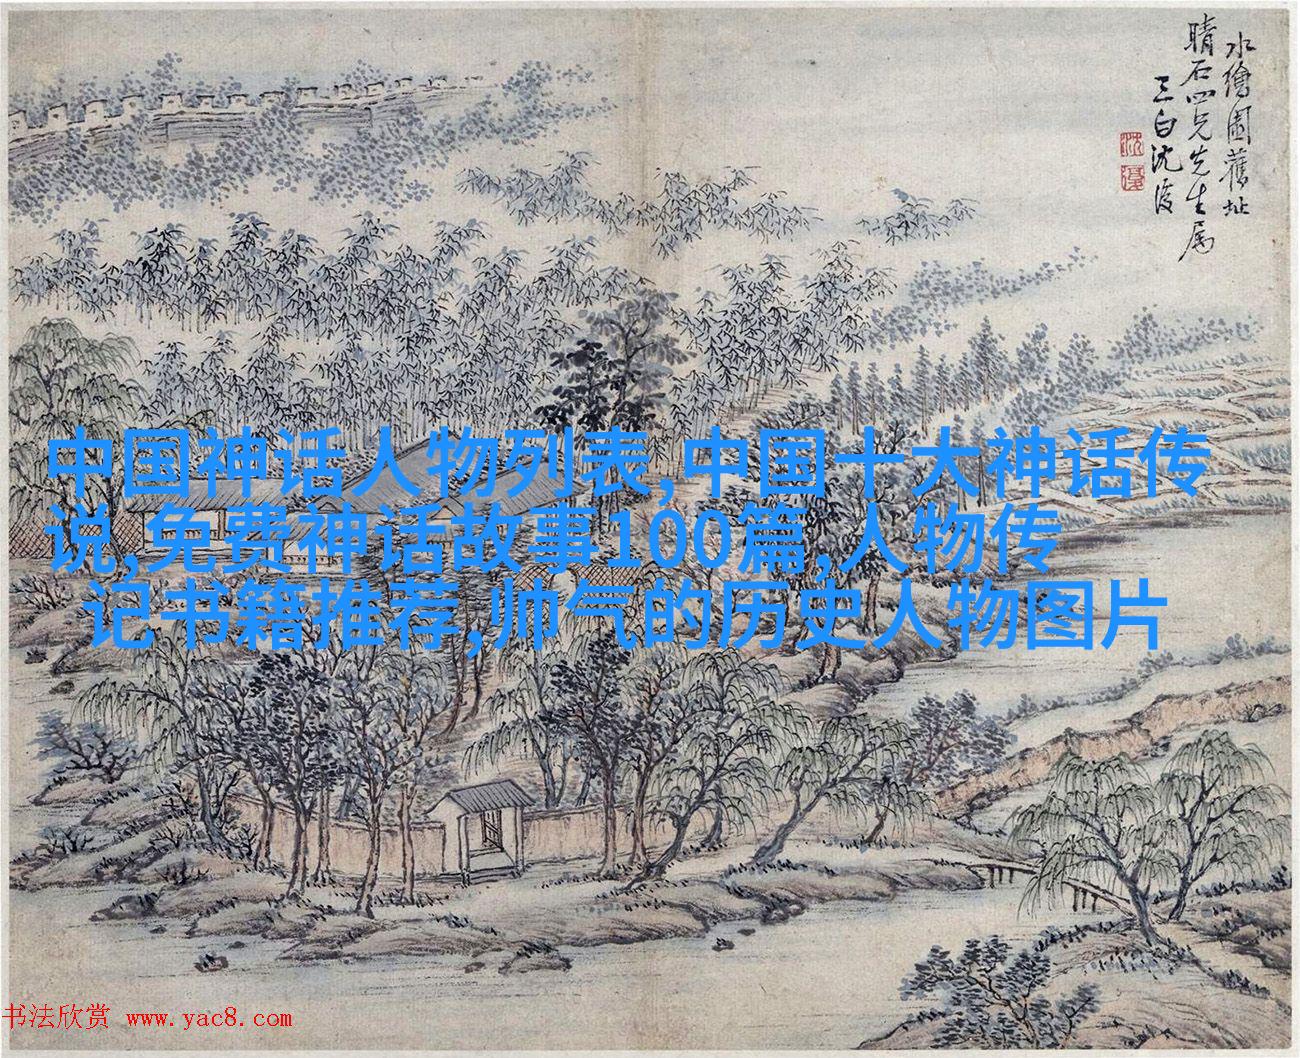 水繪園舊址
晴石四兄先生属
三白沈復
沈
復
中国神话人物列表,中国十大神话传
说,免费神话故事100篇,人物传
记书籍推荐,帅气的历史人物图片
书法欣赏 www.yac8.com